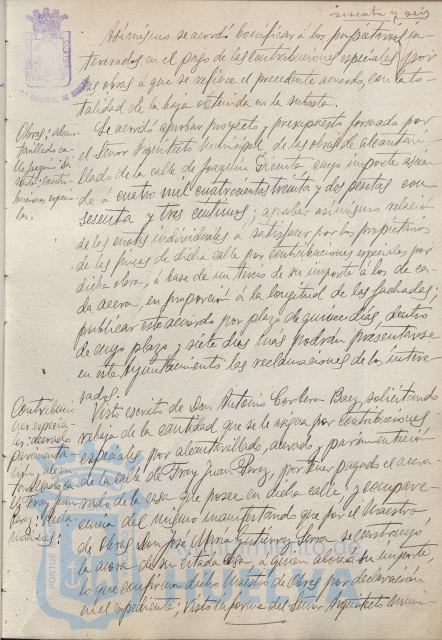 sesenta y seis
Asimismo se acordó bonificar a los propietarios in-
teresados en el pago de las contribuciones especiales por
las obras a que se refiere el precedente acuerdo, con la to-
talidad de la baja obtenida en la subasta.
Obras; alcan-
tarillado ca-
lle Joaquin Di-
centa; contri-
buciones especia-
les.
Se acordó aprobar proyecto y presupuesto formado por
el Señor Arquitecto Municipal de las obras de alcantari-
llado de la calle de Joaquín Dicenta cuyo importe ascien-
de a cuatro mil cuatrocientas treinta y dos pesetas con
sesenta y tres centimos; aprobar asimismo relación
de las cuotas individuales a satisfacer por los propietarios
de las fincas de dicha calle por contribuciones especiales por
dicha obra, a base de un tercio de su importe a los de ca-
da acera, en proporción a la longitud de las fachadas;
publicar este acuerdo por plazo de quince dias, dentro
de cuyo plazo y siete dias más podrán presentarse
en este Ayuntamiento las reclamaciones de los intere-
sados.
Contribucio-
nes especia-
les; acerado
pavimenta-
ción, alcan-
tarillado ca-
lle Fray Juan
Perez; recla-
maciones:
Visto escrito de Don Antonio Corbera Baez solicitando
rebaja de la cantidad que se le asigna por contribuciones
especiales por alcantarillado, acerado y pavimentación
de la calle de Fray Juan Perez, por tener pagado el acera-
rado de la casa que posee en dicha calle, y compare-
cencia del mismo manifestando que por el Maestro
de Obras Don José Maria Gutierrez Mora se construyó
la acera de su citada casa, a quien abonó su importe,
lo que confirma dicho Maestro de Obras por declaración
en el expediente; Visto informe del Señor Arquitecto Munici-
Ayuntamiento de
HUELVA